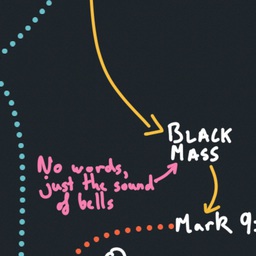 BLACK
MASS
No words,
just the sound
of bells
Mark 9: